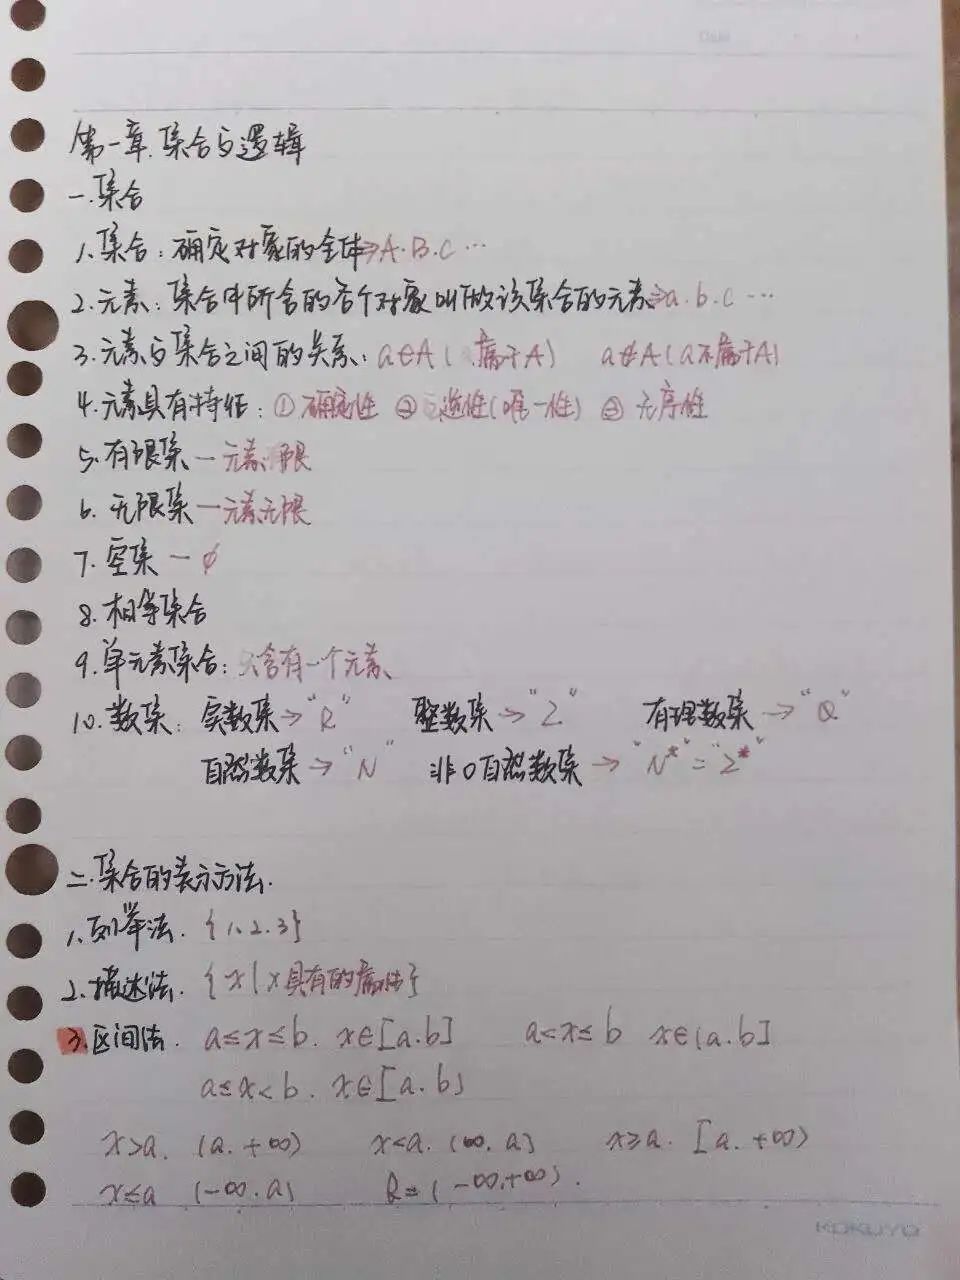 Date
第一章.集合与逻辑
一.集合
1.集合:确定对象的全体⇒A.B.C…
2.元素:集合中所含的各个对象叫做该集合的元素⇒a.b.c…
3.元素与集合之间的关系:a∈A(属于A) a∉A(a不属于A)
4.元素具有特征:①确定性 ② 性(唯一性) ③ 无序性
5.有限集—元素有限
6.无限集—元素无限
7.空集—∅
8.相等集合
9.单元素集合:只含有一个元素
10.数集:实数集→"R" 整数集→"Z" 有理数集→"Q"
自然数集→"N" 非0自然数集→"N*"="Z*"
二.集合的表示方法.
1.列举法.{1.2.3}
2.描述法.{x|x具有的属性}
3.区间法. a≤x≤b. x∈[a.b] a<x≤b x∈(a.b]
a≤x<b. x∈[a.b)
x>a. (a.+∞) x<a. (∞.a) x≥a. [a.+∞)
x≤a (-∞.a) R=(-∞,+∞).
KOKUYO